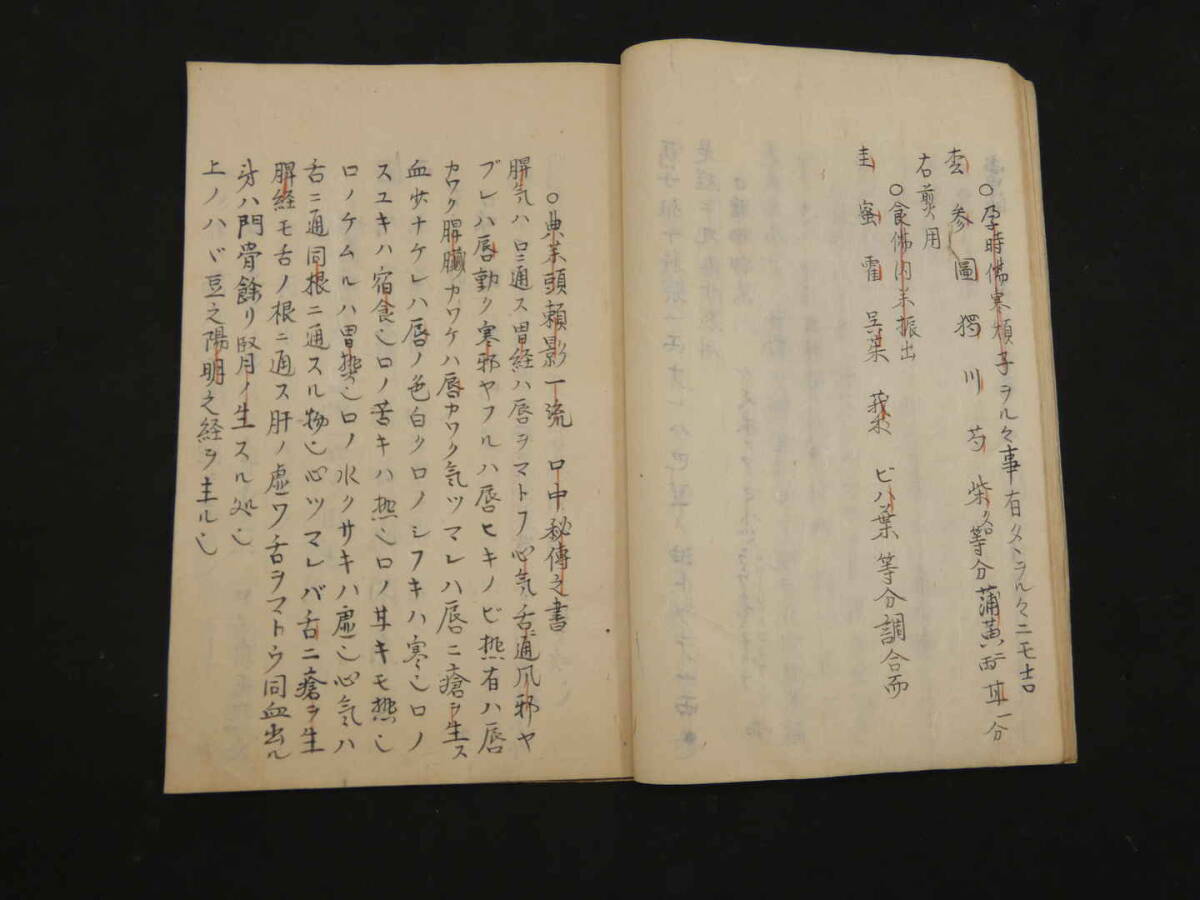 ○孕時傷寒煩子ヲルヽ事有タトヲルヽニモ吉
参 圓 獨 川 芎 柴 等分蒲黄 一分
右煎用
○食傷内薬振出
圭 蜜 霍 呉茱 莪朮 ビハ葉 等分調合而
○典薬頭頼影一流 口中秘傳之書
脾気ハ口ニ通ス胃経ハ唇ヲマトフ心気舌ニ通爪邪ヤ
ブレハ唇動ク寒邪ヤフルハ唇ヒキノビ熱有ハ唇
カワク脾臓カワケハ唇カワク気ツマレハ唇ニ瘡ヲ生ス
血少ナケレハ唇ノ色白ク口ノシフキハ寒也口ノ
スユキハ宿食也口ノ苦キハ熱也口ノ甘キモ熱也
口ノケムルハ胃熱也口ノ水クサキハ虚也心気ハ
舌ニ通同根ニ通スル物也心ツマレバ舌ニ瘡ヲ生
脾経モ舌ノ根ニ通ス肝ノ虚ワ舌ヲマトウ同血出ル
牙ハ門骨餘リ腎ノ生スル処也
上ノハバ豆之陽明之経ヲ主ル也